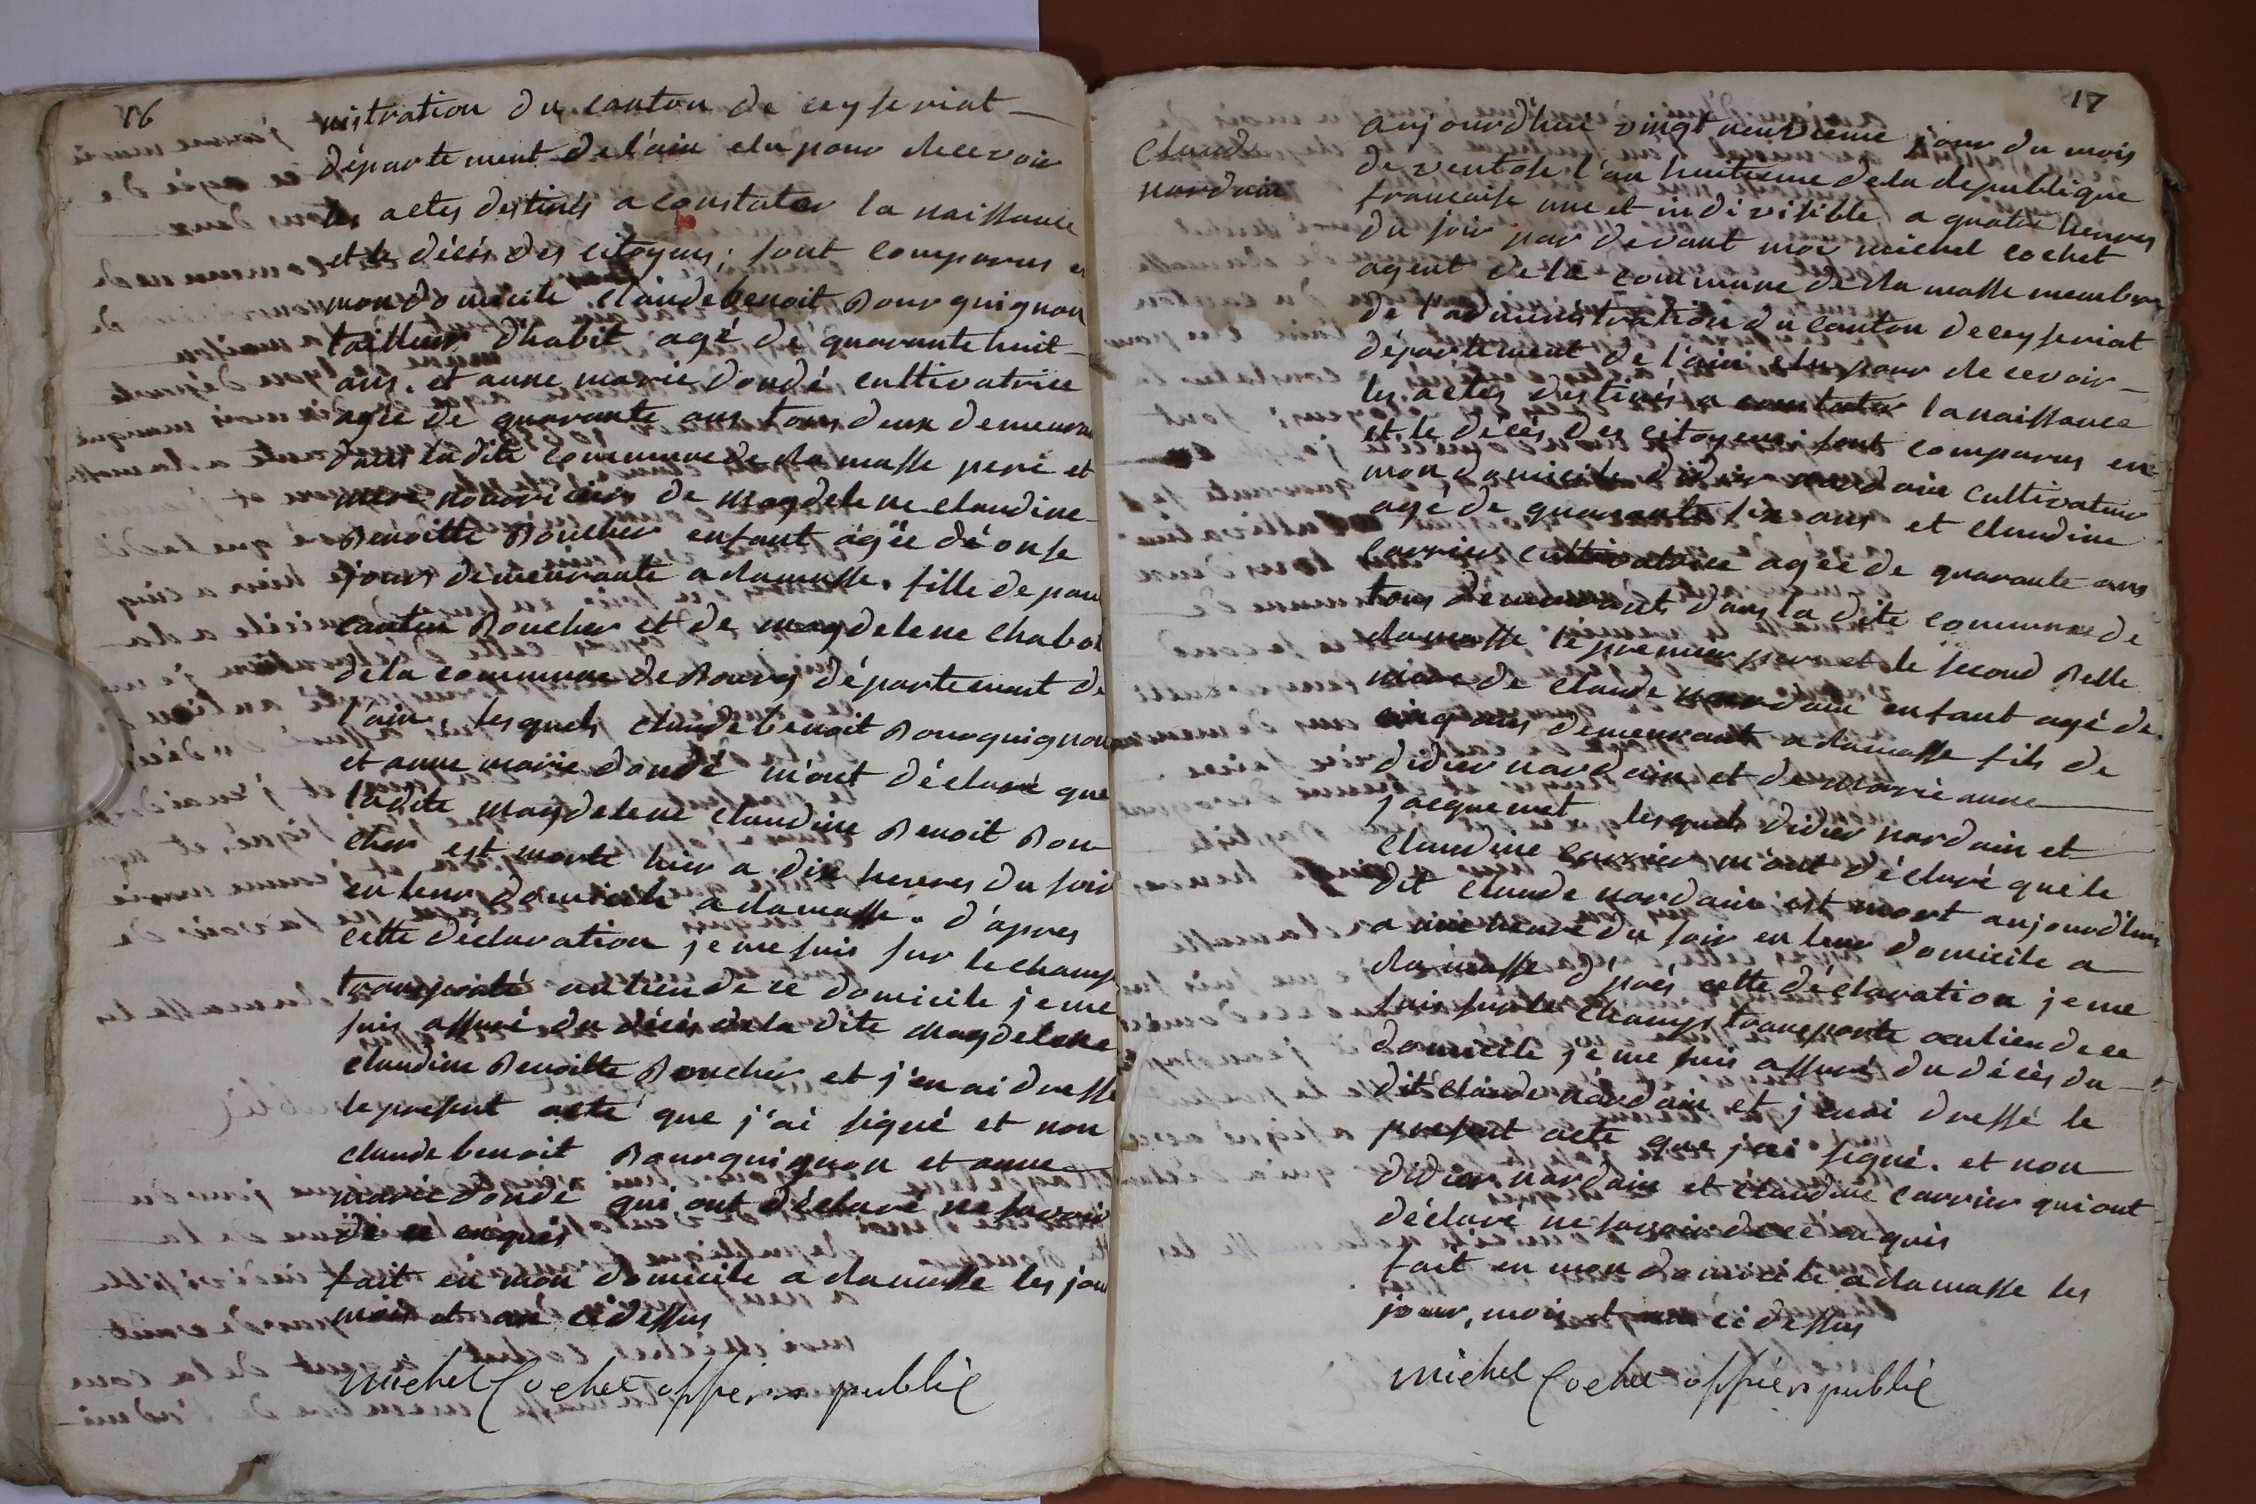 16
nistration du canton de ceyseriat
département de l'ain elu pour recevoir
les actes destinés a constater la naissance
et le décès des citoyens; sont comparus en
mon domicile claude benoit Bourguignon
tailleur d'habit agé de quarante huit
ans, et anne marie dondé cultivatrice
agée de quarante ans tous deux demeurant
dans ladite commune de la masse pere et
mere nouriciers de magdelene claudine
Benoitte Boucher enfant agée d'onse
jours demeurante a ramasse. fille de paul
cantin Boucher et de magdelene chabot
de la commune de Bourg département de
l'ain, lesquels claude benoit Bourguignon
et anne marie dondé m'ont déclaré que
ladite magdelene claudine Benoit Bou
cher est morte hier a dix heures du soir
en leur domicile a ramasse. d'apres
cette déclaration je me suis sur le champ
transporté au lieu de ce domicile je me
suis assuré du décès de la dite magdelene
claudine Benoitte Boucher et j'en ai dressé
le present acte que j'ai signé et non
claude benoit Bourguignon et anne
marie dondé qui ont déclaré ne savoir
de ce enquis
fait en mon domicile a ramasse les jour
mois et an ci dessus
michel Cochet officier public
17
Claude
nardain
aujourdhui vingt neuvieme jour du mois
de ventose l'an huitieme de la republique
francaise une et indivisible a quatre heures
du soir par devant moi michel cochet
agent de la commune de ramasse membre
de l'administration du canton de ceyseriat
département de l'ain elu pour recevoir
les actes destinés a constater la naissance
et le décès des citoyens; sont comparus en
mon domicile didier nardain cultivateur
agé de quarante six ans et claudine
carrier cultivatrice agée de quarante ans
tous demeurants dans la dite commune de
ramasse le premier pere et le second Belle
mere de claude nardain enfant agé de
cinq ans demeurant a ramasse fils de
didier nardain et de marie anne
jacquemet lesquels didier nardain et
claudine carrier m'ont déclaré que le
dit claude nardain est mort aujourdhui
a une heure du soir en leur domicile a
ramasse d'près cette déclaration je me
suis sur le champs transporté au lieu de ce
domicile je me suis assuré du décès du
dit claude nardain et j'enai dressé le
present acte que j'ai signé. et non
didier nardain et claudine carrier qui ont
déclaré ne savoir de ce enquis
fait en mon domicile a ramasse les
jour, mois et an ci dessus
michel Cochet officier public